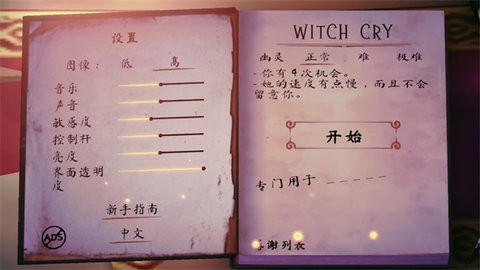 设置
图像: 低 高
音乐
声音
敏感度
控制杆
亮度
界面透明
度
新手指南
中文
ADS
WITCH CRY
幽灵 正常 难 极难
-你有4次机会。
-她的速度有点慢,而且不会
留意你。
开始
专门用于 -----
谢列表